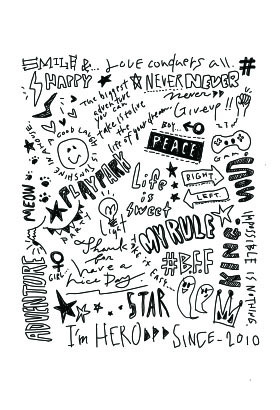 SMILE &... Love conquers all. #
HAPPY
The biggest
adventure
you can
take is to live
the life of your dream.
NEVER NEVER
never
Give up!!
A GOOD LAUGH
IS SUNSHINE
IN A HOUSE
BOY...
PEACE
MEOW
PLAY PARK
Life
is
sweet
RIGHT
LEFT
MINE
PARTY
Light
MY RULE
IMPOSSIBLE IS NOTHING.
ADVENTURE
GIRL
Thanks
for
have a
nice Day
#BFF
KING
STAR
I'm HERO SINCE-2010